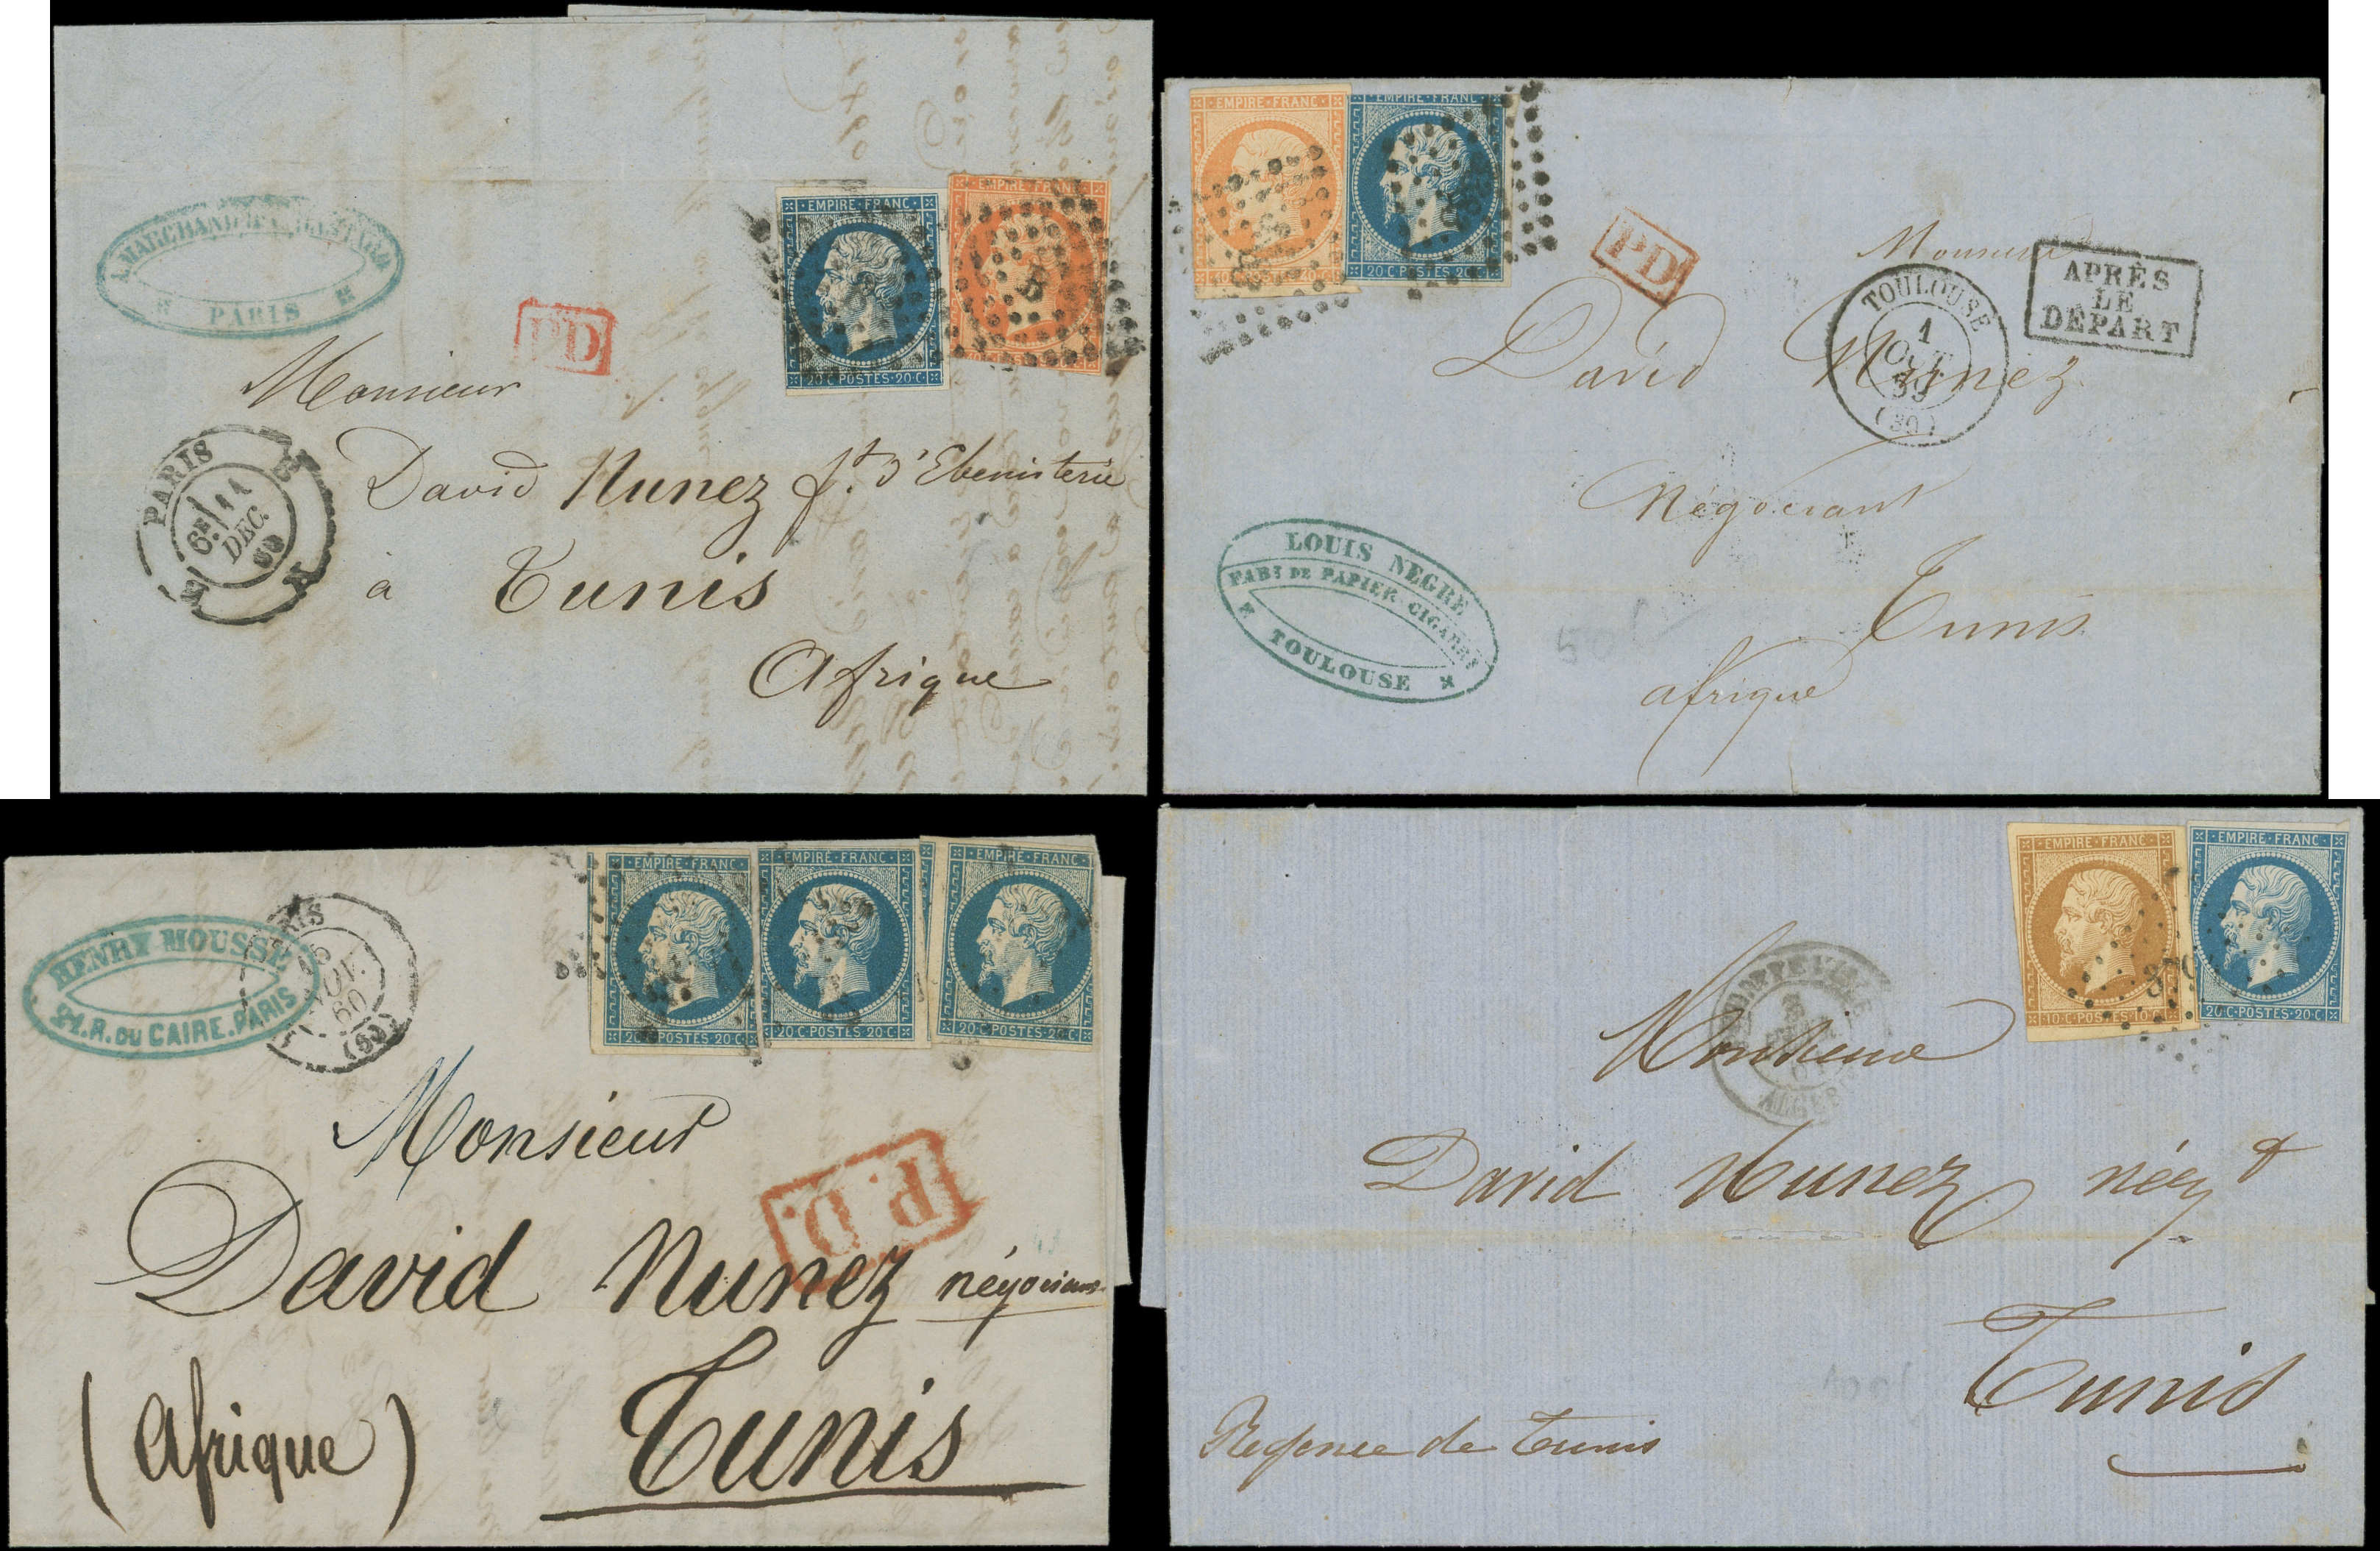 PARIS
PD
EMPIRE·FRANC·
20·C·POSTES·20·C·
EMPIRE·FRANC
Monsieur
David Nunez ft. d'Ebenisterie
à Tunis
Afrique
PARIS
6E
11
DEC.
60
EMPIRE·FRANC·
EMPIRE·FRANC·
20·C·POSTES·20·C·
PD
Monsieur
David Nunez
Négociant
Tunis
afrique
TOULOUSE
1
OCT.
59
(30)
APRÈS
LE
DÉPART
LOUIS NEGRE
FABT DE PAPIER CIGARET
TOULOUSE
50
HENRY MOUSSE
21.R.DU CAIRE.PARIS
60
(60)
EMPIRE·FRANC·
20·C·POSTES·20·C·
EMPIRE·FRANC·
20·C·POSTES·20·C·
EMPIRE·FRANC·
20·C·POSTES·20·C·
P.D.
Monsieur
David Nunez négociant
Tunis
(Afrique)
EMPIRE·FRANC·
10·C·POSTES·10·C·
EMPIRE·FRANC·
20·C·POSTES·20·C·
ALGERIE
Monsieur
David Nunez négt
Tunis
Regence de Tunis